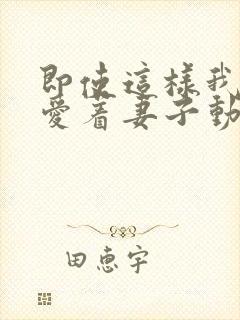 即使這樣我
愛着妻子動
田惠宇